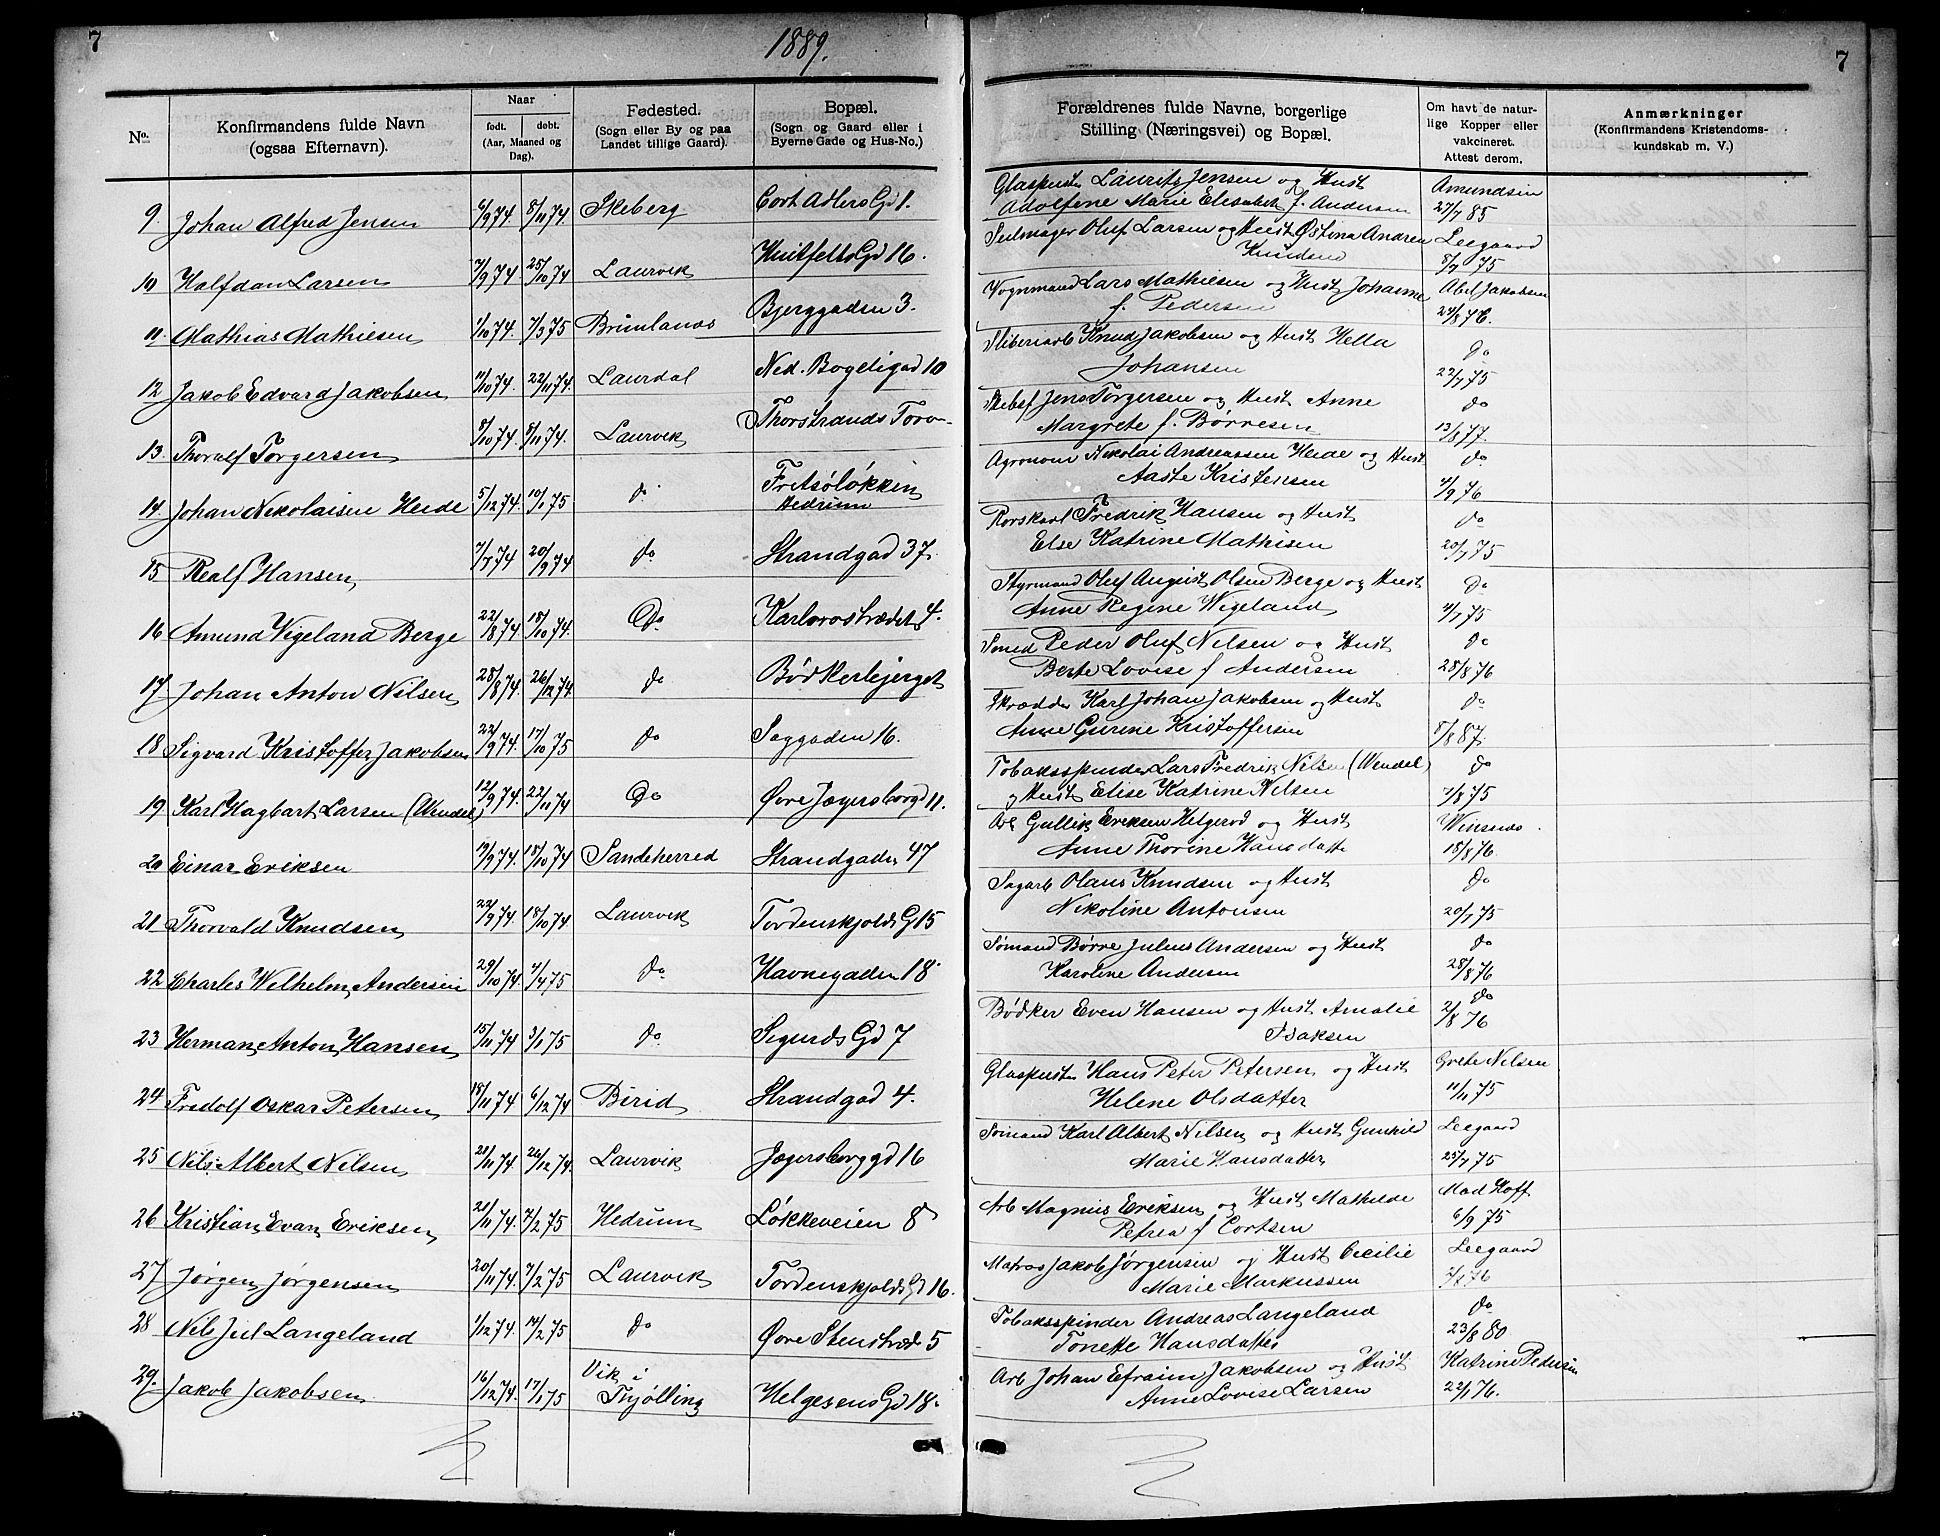 7
1889.
7
No.
Konfirmandens fulde Navn
(ogsaa Efternavn).
Naar
født. døbt.
(Aar, Maaned og
Dag).
Fødested.
(Sogn eller By og paa
Landet tillige Gaard).
Bopæl.
(Sogn og Gaard eller i
Byerne Gade og Hus-No.)
Forældrenes fulde Navne, borgerlige
Stilling (Næringsvei) og Bopæl.
Om havt de natur-
lige Kopper eller
vakcineret.
Attest derom.
Anmærkninger
(Konfirmandens Kristendoms-
kundskab m. V.)
9. Johan Alfred Jensen 6/9 74. 8/11 74. Skeberg Cort Adlers Gd 1. Glaspuster Laurits Jensen og Hust Amundsen
Adolfine Marie Elisabeth f. Andersen 27/7 85
10 Halfdan Larsen 7/9 74. 25/10 74 Laurvik Huitfelts Gd 16. Seilmager Oluf Larsen og Hust Østina Andrea Leegaard
Knudsen 8/7 75
11. Mathias Mathiesen 1/10 74. 7/3 75 Brunlanæs Bjerggaden 3. Vognmand Lars Mathiesen og Hust Johanne Abel Jakobsen
f. Pedersen 24/8 76.
12 Jakob Edvard Jakobsen 11/10 74. 22/11 74. Laurdal Ned. Bøgeligad 10 Sliberiarb Knud Jakobsen og Hust Hella Do
Johansen 22/7 75
13. Thoralf Torgersen 8/10 74. 8/11 74. Laurvik Thorstrands Torv Skibsf Jens Torgersen og Hust Anne do
Margrete f. Børresen 13/8 77.
14. Johan Nikolaisen Heide 5/12 74. 10/1 75 do Fritsøløkken
Hedrum Agronom Nikolai Andreassen Heide og Hust do
Aaste Kristensen 4/9 76
15 Realf Hansen 7/7 74 20/9 74 do Strandgad 37. Rorskarl Fredrik Hansen og Hust do
Else Katrine Mathisen 20/7 75
16 Amund Vigeland Berge 22/8 74. 18/10 74. Do Karlsrostrædet 4. Styrmand Oluf August Olsen Berge og Hust Do
Anne Regine Wigeland 4/7 75
17 Johan Anton Nilsen 28/8 74. 26/12 74 do Bødkerbjerget Smed Peder Oluf Nilsen og Hust do
Berte Lovise f Andersen 28/8 76
18 Sigvard Kristoffer Jakobsen 22/9 74. 17/10 75 do Saggaden 16. Skrædder Karl Johan Jakobsen og Hust do
Anne Gurine Kristoffersen 8/8 87.
19 Karl Hagbart Larsen (Wendel) 12/9 74. 22/11 74 Do Øvre Jegersborgd 11. Tobaksspinder Lars Fredrik Nilsen (Wendel) do
og Hust Elise Katrine Nilsen 2/8 75
20 Einar Eriksen 19/9 74. 18/10 74 Sandeherred Strandgaden 47 Arb Gullik Eriksen Helgerød og Hust Winsnæs
Anne Thorine Hansdatte 18/8 76
21 Thorvald Knudsen 22/9 74. 18/10 74 Laurvik Tordenskjolds G 15 Sagarb Olaus Knudsen og Hust Do
Nikoline Antonsen 20/7 75
22 Charles Wilhelm Andersen 29/10 74. 4/4 75 do Havnegaden 18. Sømand Børre Julius Andersen og Hust do
Karoline Andersen 28/8 76
23 Herman Anton Hansen 15/11 74 3/1 75 do Sigurds Gd 7 Bødker Even Hansen og Hust Amalie do
Isaksen 2/8 76
24 Fredolf Oskar Petersen 18/11 74 6/12 74 Birid Strandgad 4. Glaspuster Hans Peter Petersen og Hust Grete Nilsen
Helene Olsdatter 11/11 75
25 Nils Albert Nilsen 21/11 74. 26/12 74. Laurvik Jegersborggd 16 Sømand Karl Albert Nilsen og Hust Gunhild Leegaard
Marie Hansdatter 25/7 75
26 Kristian Evan Eriksen 21/11 74. 7/2 75 Hedrum Løkkeveien 8 Arb Magnus Eriksen og Hust Mathilde Mad Hoff
Petrea f Cortsen 6/9 75
27 Jørgen Jørgensen 20/11 74. 7/2 75 Laurvik Tordenskjolds Gd 16. Matros Jakob Jørgensen og Hust Cecilie Leegaard
Marie Markussen
28 Nils Juel Langeland 1/12 74. 14/2 75 do Øvre Stenstræde 5 Tobaksspinder Andreas Langeland do
Tonette Hansdatter 23/8 80
29. Jakob Jakobsen 16/12 74. 17/1 75 Vik i
Thjølling Helgesens Gd 18. Arb Johan Efraim Jakobsen og Hust Katrine Pedersen
Anne Lovise Larsen 22/1 76.